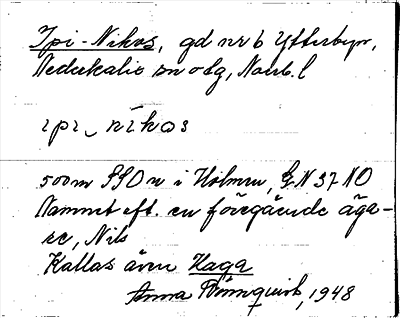 Ipi-Nikas, gd nr 6 Ytterbyn,
Nederkalix sn o tg, Norrb. l
ipi- níkas
500 m SSO n i Holmen, G N 37 NO
Namnet eft. en föregående äga-
re, Nils
Kallas även Haga
Anna 1948